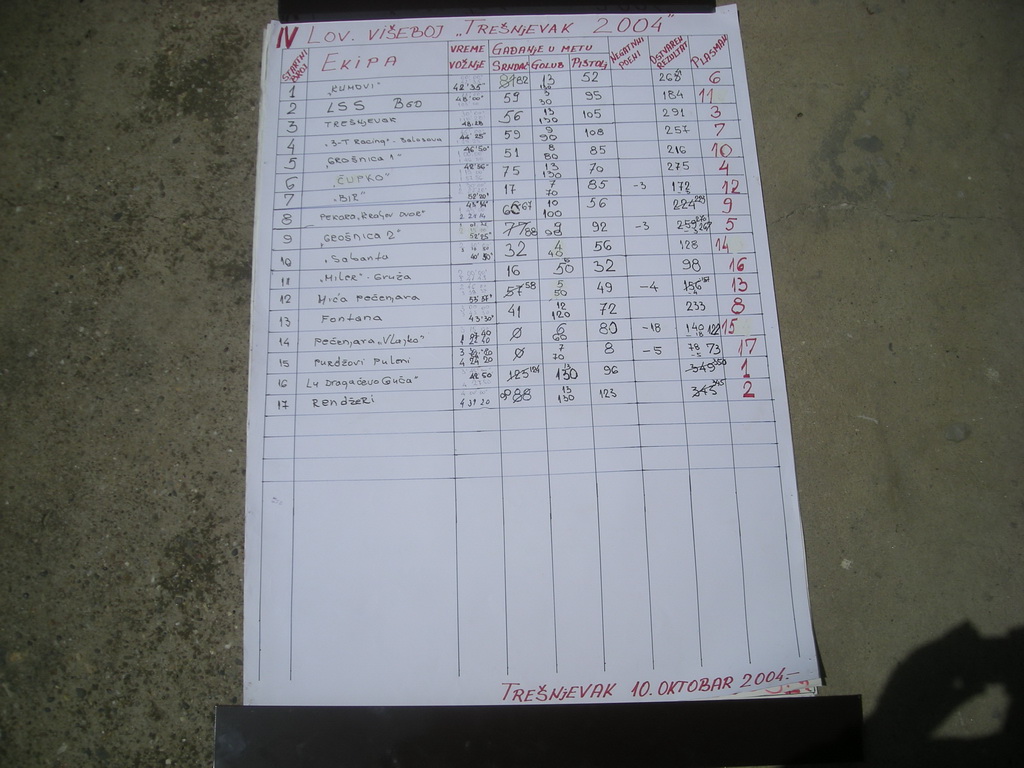 IV LOV. VIŠEBOJ „TREŠNJEVAK 2004"
STARTNI BROJ EKIPA VREME VOŽNJE GAĐANJE U METU SRNDAĆ GOLUB PIŠTOLJ NEGATIVNI POENI OSTVAREN REZULTAT PLASMAN
1 42'35" 82 13 130 52 268 6
2 LSS BGD 48'00" 59 3 30 95 184 11
3 TREŠNJEVAK 56 13 130 105 291 3
4 59 9 90 108 257 7
5 „GROŠNICA 1" 46'50" 51 8 80 85 216 10
6 „ČUPKO" 75 13 130 70 275 4
7 „BIR" 17 7 70 85 -3 172 12
8 67 10 100 56 224 9
9 „GROŠNICA 2" 52'25" 77 88 9 90 92 -3 5
10 „Sabanta 32 4 40 56 128 14
11 „MILER". Gruža 16 50 32 98 16
12 Mića Pečenjara 57 58 5 50 49 -4 156 13
13 Fontana 43'30" 41 12 120 72 233 8
14 Pečenjara „Vlajko" ø 6 60 80 -18 140 122 15
15 Purdžovi Puleni ø 7 70 8 -5 78 73 17
16 LU Dragačevo Guča" 42 50 125 13 130 96 349 350 1
17 Rendžeri 88 13 130 123 345 2
TREŠNJEVAK 10. OKTOBAR 2004.-